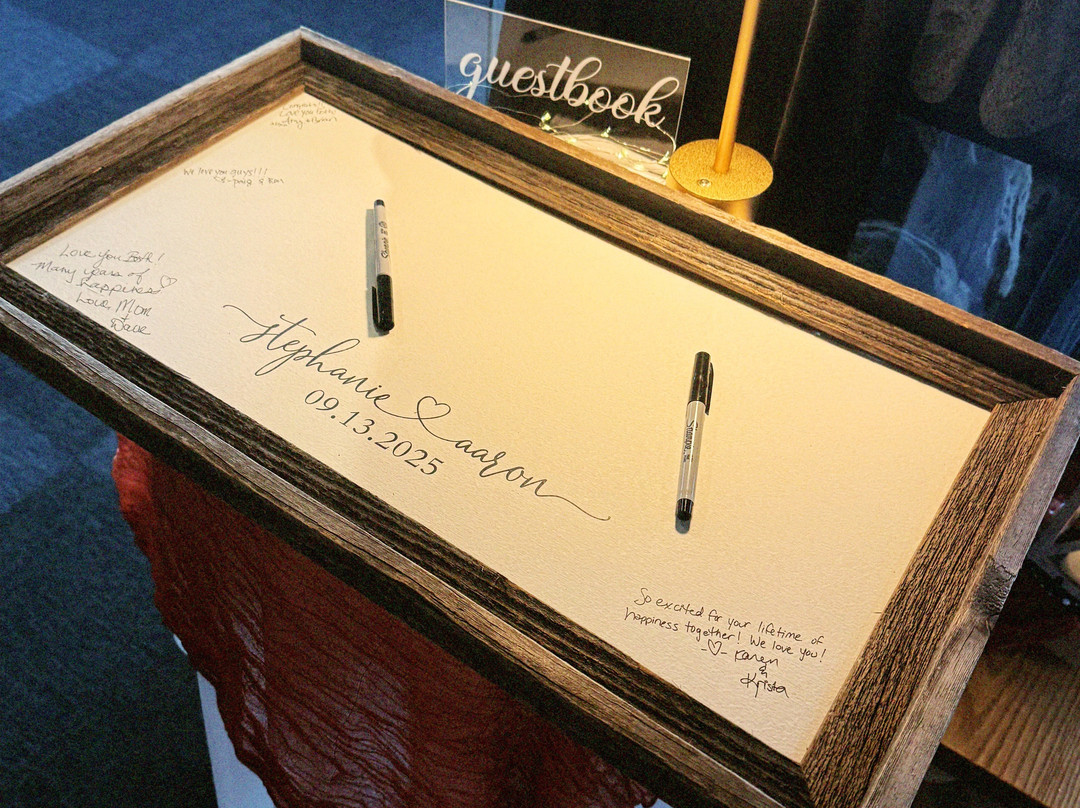 guestbook
Love you
we love you guys!!!
Love you Both!
Many years of
happiness ♡
Love, Mom
+
Dave
stephanie ♡ aaron
09.13.2025
Sharpie
So excited for your lifetime of
happiness together! We love you!
-♡- Karen
&
Krista